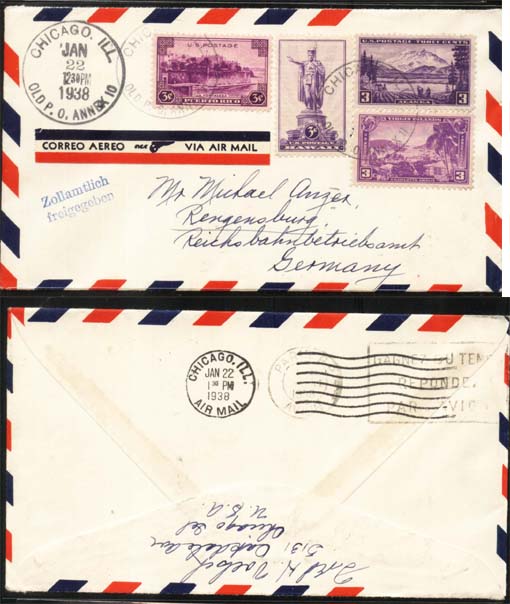 CHICAGO, ILL.
JAN
22
1230PM
1938
OLD P.O. ANNEX 10
U.S. POSTAGE
3¢ 3¢
PUERTO RICO
3¢
U.S. POSTAGE
HAWAII
U.S. POSTAGE THREE CENTS
3 3
ALASKA
VIRGIN ISLANDS
3 3
CORREO AEREO VIA AIR MAIL
Zollamtlich
freigegeben
Mr Michael Anger
Rengensburg,
Reichsbahnbetriebsamt
Germany
CHICAGO, ILL.
JAN 22
1 30 PM
1938
AIR MAIL
GAGNEZ DU TEM
REPONDE
PAR AVIO
Chicago Ill
U.S.A.